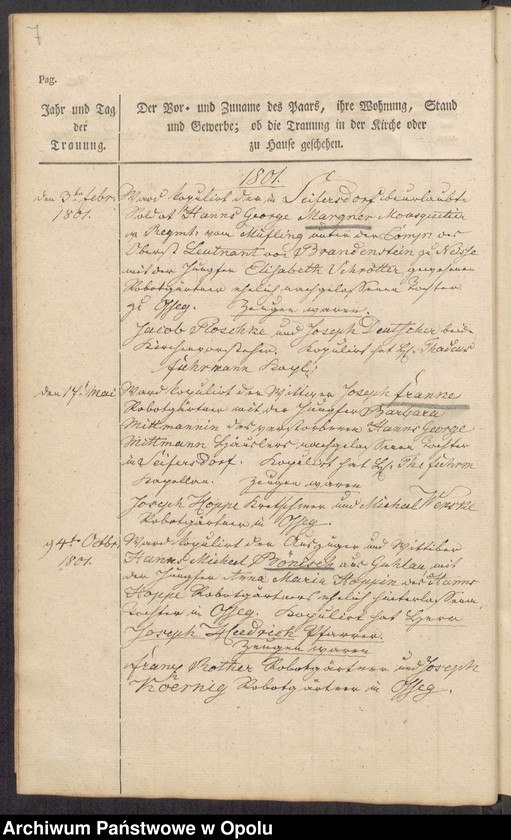 7
Pag.
Jahr und Tag
der
Trauung.
Der Vor- und Zuname des Paars, ihre Wohnung, Stand
und Gewerbe; ob die Trauung in der Kirche oder
zu Hause geschehen.
1801.
den 3ten Febr.
1801.
Ward kopulirt der in Seifersdorf beurlaubte
Soldat Hanns George Margner Mousquetier
Regmt: vom Müfling unter der Comp: des
Oberst Leutnant von Brandenstein zu Neisse
mit der Jungfer Elisabeth Schrötter gewesenen
Robotgärtner ehelich nachgelassenen Tochter
zu Osseg. Zeugen waren.
Jacob Ploschke und Joseph Deutscher beide
Kirchenvorsteher. Kopulirt hat H. Thadeus
Fuhrmann Kapl:
den 17t Mai
Ward kopulirt der Wittiger Joseph Franke
Robotgärtner mit der Jungfer Barbara
Wittmannin des verstorbenen Hanns George
Wittmann Häuslers nachgelassenen Tochter
in Seifersdorf. Kopulirt hat H. Th: Fuhrm
Kapellan. Zeugen waren
Joseph Hoppe Kretschmer und Michael Wenske
Robotgärtner in Osseg.
4ten Octbr.
1801.
Ward kopulirt der Auszüger und Wittiber
Hanns Michael Bönisch aus Guhlau mit
der Jungfer Anna Marie Hoppin des Hanns
Hoppe Robotgärtners ehelich hinterlassenen
Tochter in Osseg. Kopulirt hat Herr
Joseph Heidrich Pfarrer.
Zeugen waren
Franz Rother Robotgärtner und Joseph
Koernig Robotgärtner in Osseg.
Archiwum Państwowe w Opolu